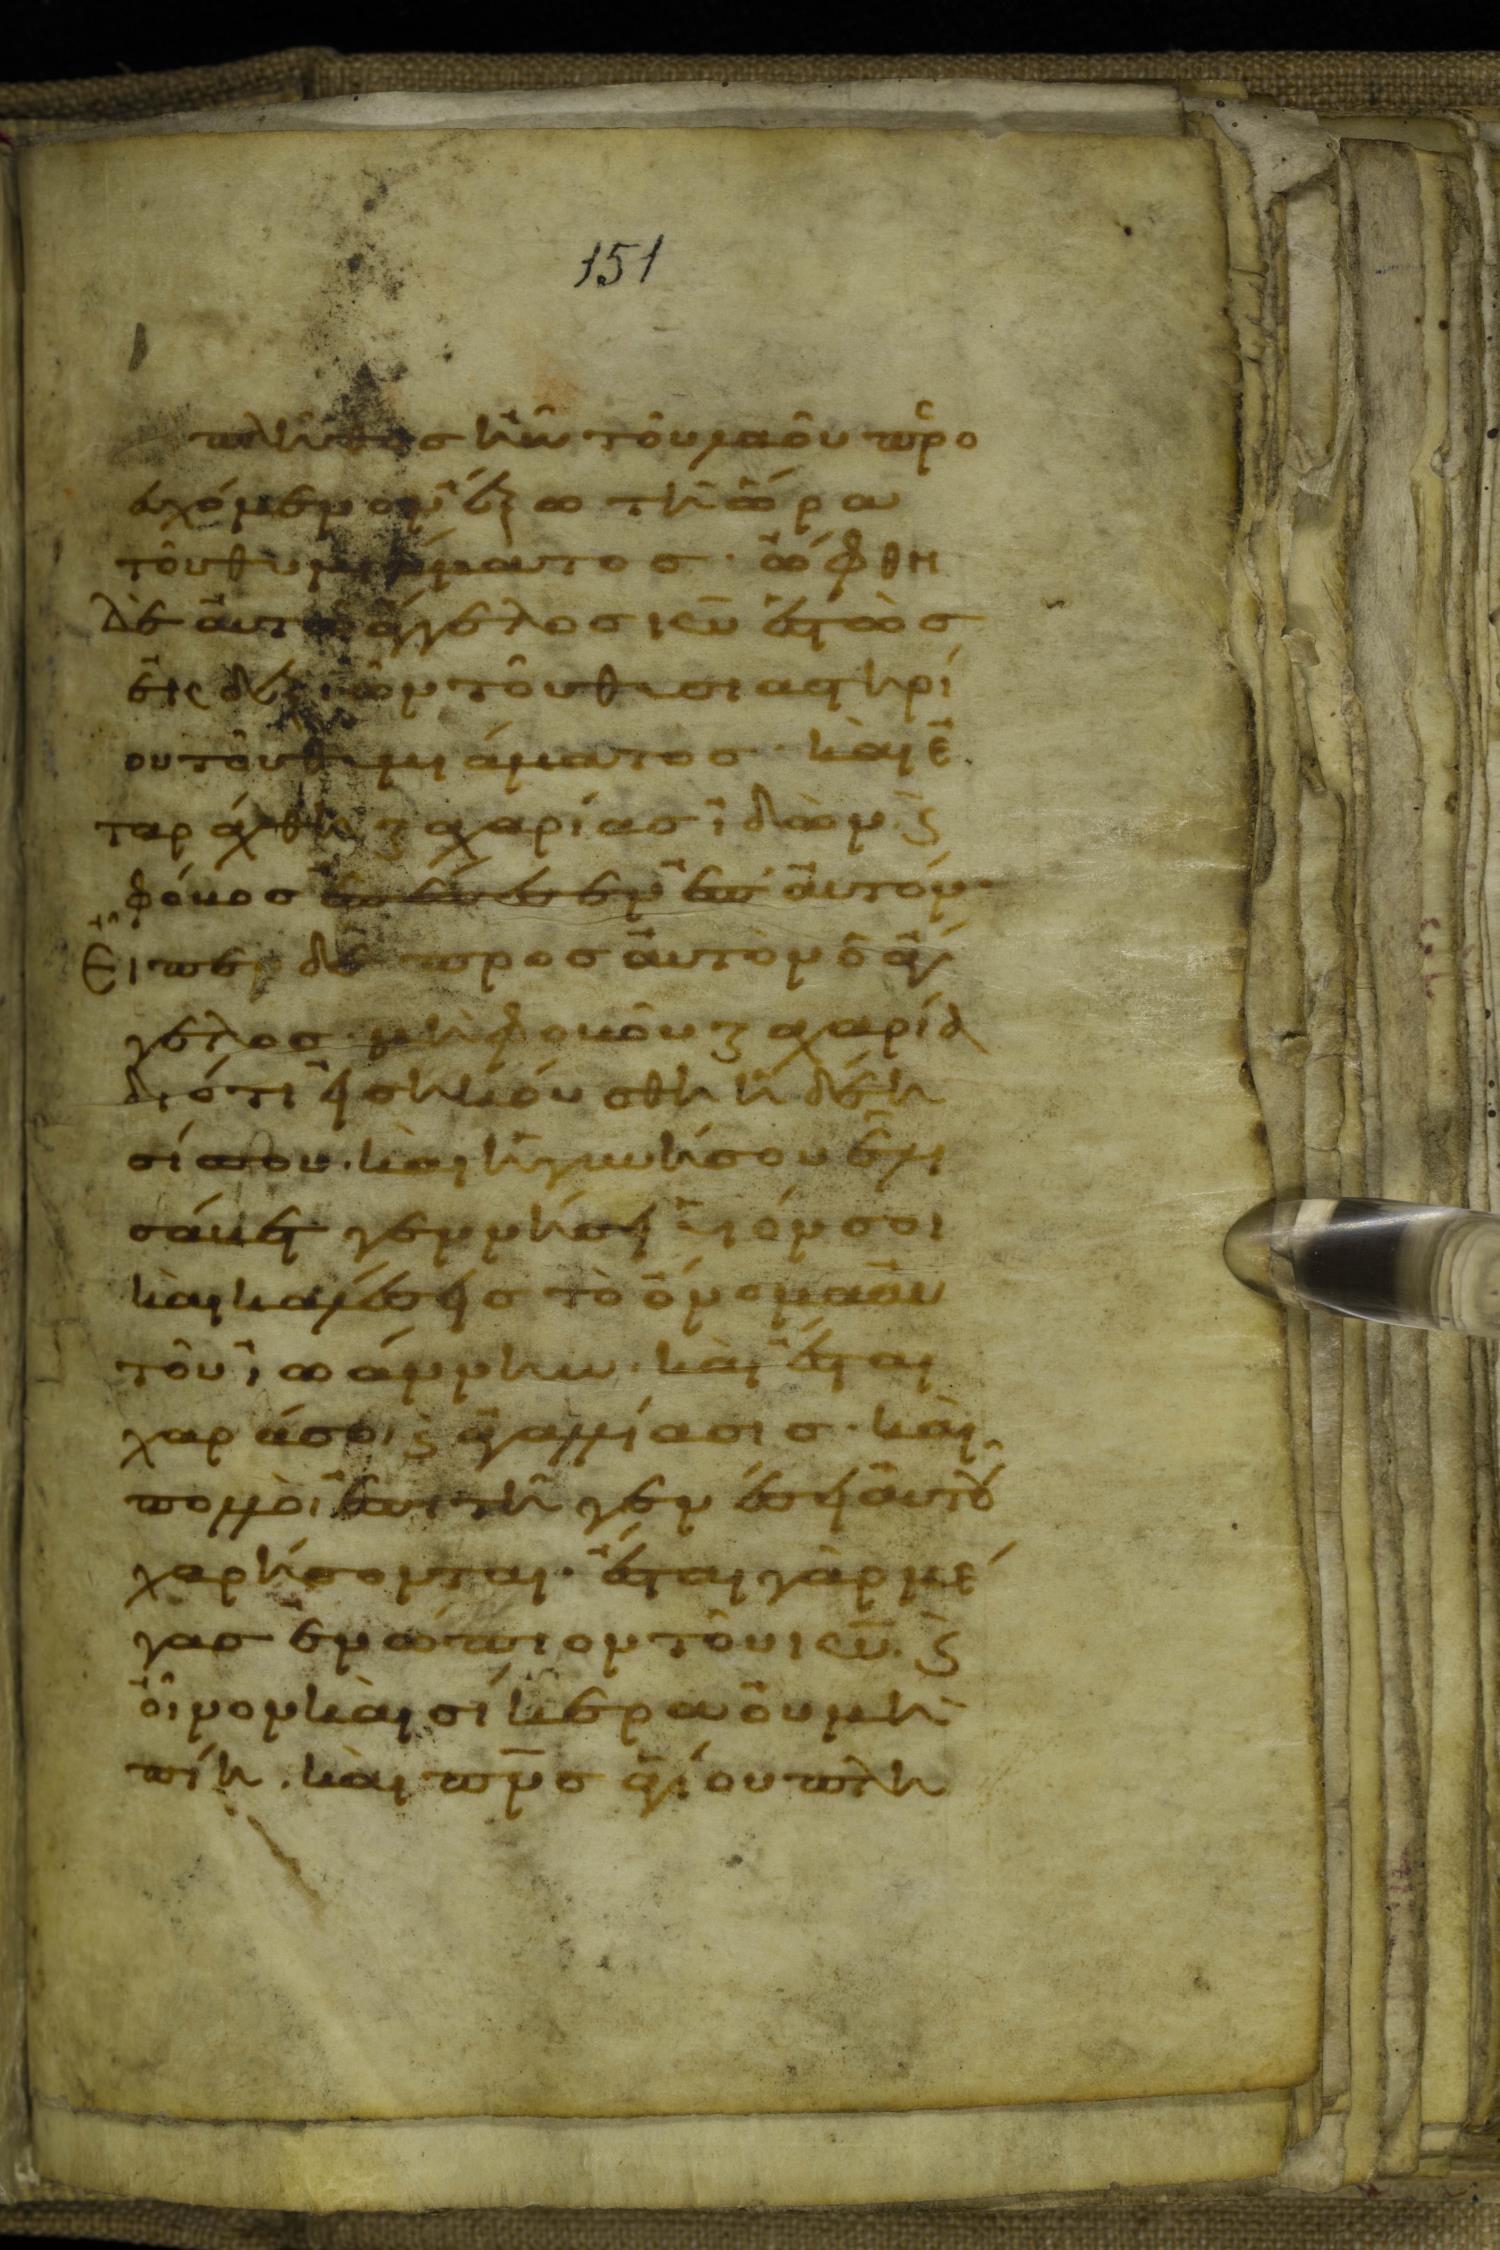 151
πλῆθος ἦν τοῦ λαοῦ προσ
ευχόμενον ἔξω τῆ ὥρα
τοῦ θυμιάματος· ὤφθη
δὲ ἀυτῶ ἄγγελος κ̅υ̅ ἑστὼς
ἐις δεξιῶν τοῦ θυσιαστηρί
ου τοῦ θυμιάματος· καὶ ἐ
ταράχθη ζαχαρίας ἰδὼν ϗ
φόβος ἐπέπεσεν ἐπ' ἀυτόν·
Εἶπεν δὲ προς ἀυτὸν ὁ ἄγ
γελος· μὴ φοβοῦ ζαχαρία
διότι ἐισηκούσθη ἡ δέη
σίς σου· καὶ ἡ γυνή σου ἐλι
σάβετ γεννήσει ὑιόν σοι
καὶ καλέσεις τὸ ὄνομα ἀυ
τοῦ ἰωάννην· καὶ ἔσται
χαρά σοι ϗ ἀγαλλίασις· καὶ
πολλοὶ ἐπι τῆ γενέσει ἀυτοῦ
χαρήσονται· ἔσται γὰρ μέ
γας ἐνώπιον τοῦ κ̅υ̅· ϗ
ὄινον καὶ σίκερα ὀυ μὴ
πίη· καὶ π̅ν̅σ ἁγίου πλη